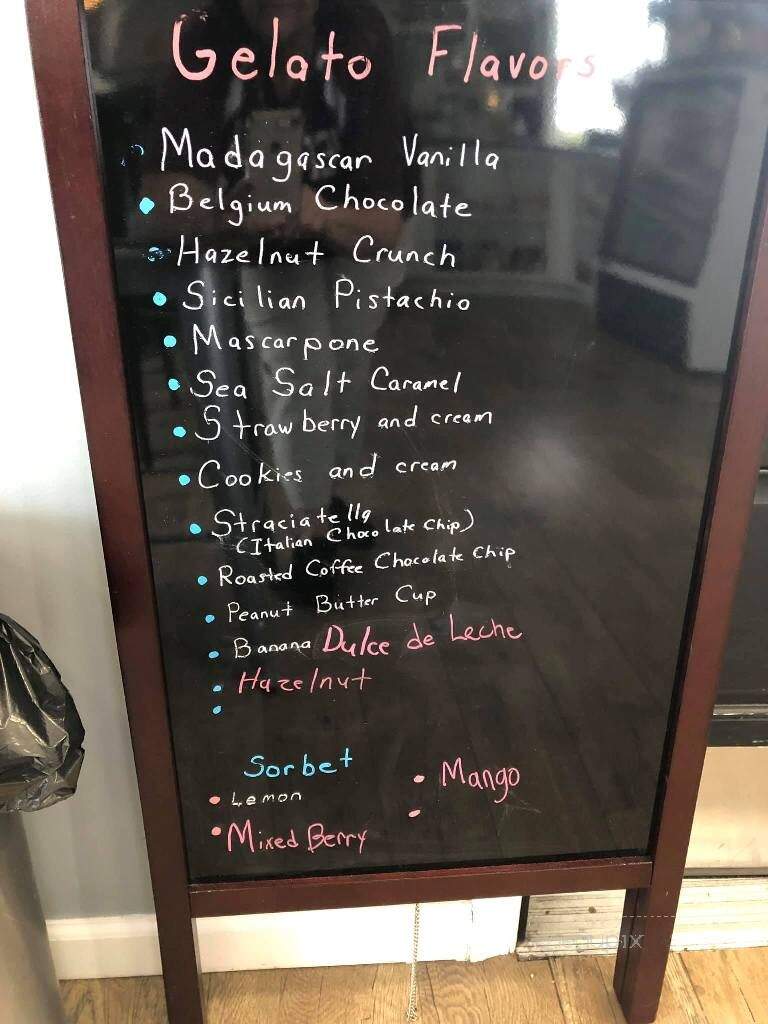 Gelato Flavors
Madagascar Vanilla
Belgium Chocolate
Hazelnut Crunch
Sicilian Pistachio
Mascarpone
Sea Salt Caramel
Strawberry and cream
Cookies and cream
Straciatella
(Italian Chocolate Chip)
Roasted Coffee Chocolate Chip
Peanut Butter Cup
Banana Dulce de Leche
Hazelnut
Sorbet
Lemon
Mango
Mixed Berry